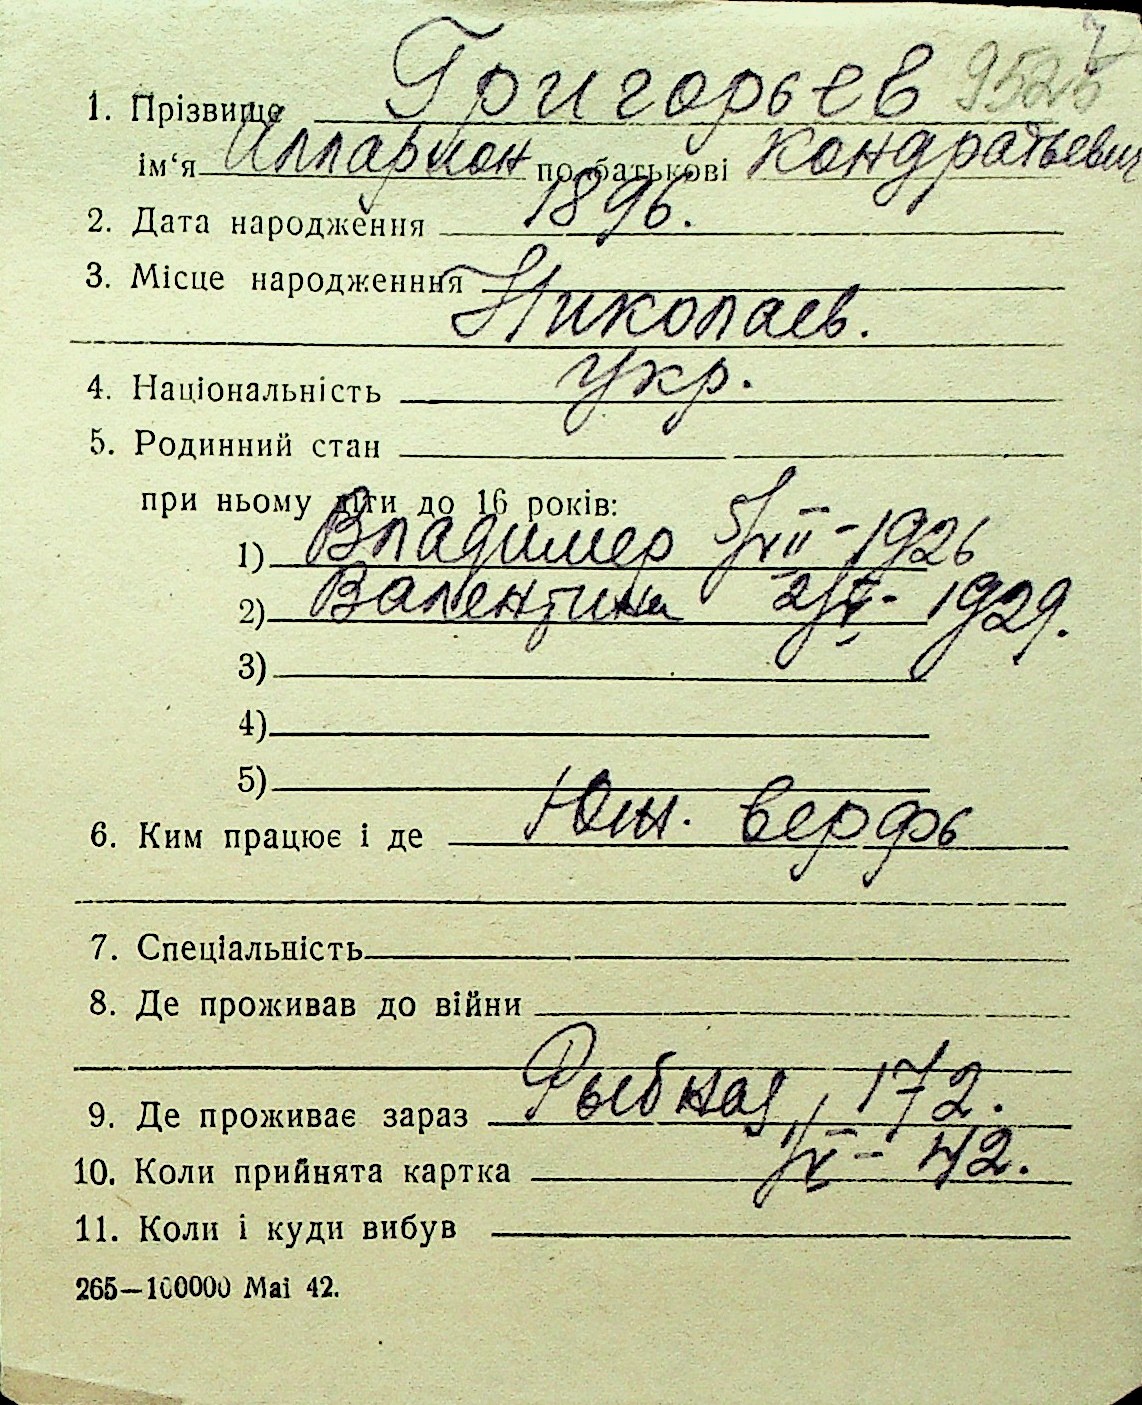 1. Прізвище Григорьев
ім‘я Илларион по-батькові Кондратьевич
2. Дата народження 1896.
3. Місце народженння
Николаев.
4. Національність укр.
5. Родинний стан
при ньому діти до 16 років:
1) Владимер 5/VII - 1926
2) Валентина 2/V - 1929.
3)
4)
5)
6. Ким працює і де Юж. верфь
7. Спеціальність
8. Де проживав до війни
9. Де проживає зараз Рыбная, 172.
10. Коли прийнята картка 1/V - 42.
11. Коли і куди вибув
265—100000 Mai 42.